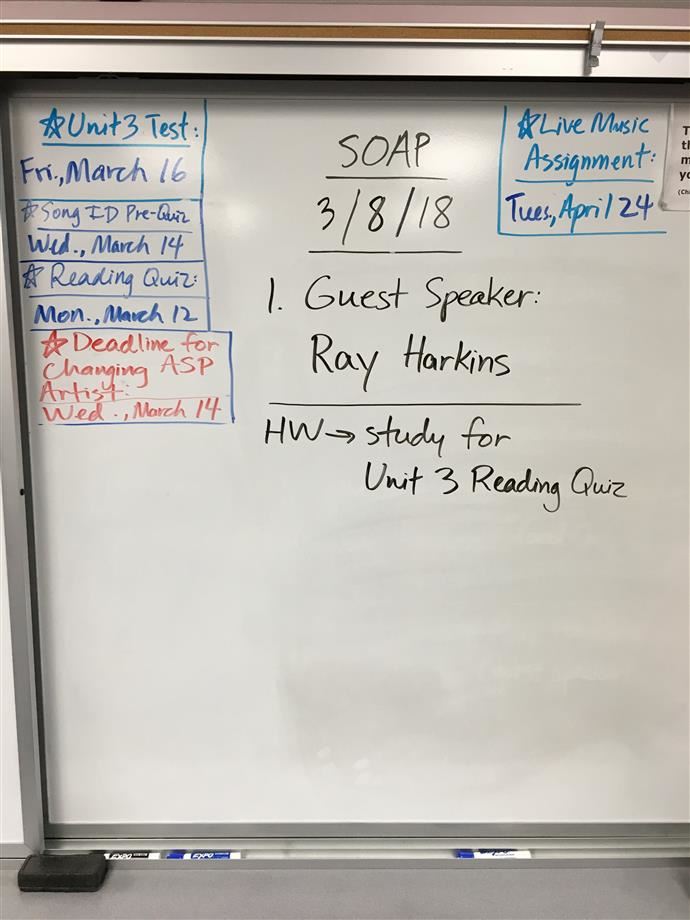 ☆Unit 3 Test:
Fri., March 16
☆Song ID Pre-Quiz
Wed., March 14
☆Reading Quiz:
Mon., March 12
☆Deadline for
Changing ASP
Artist:
Wed., March 14
SOAP
3/8/18
1. Guest Speaker:
Ray Harkins
HW→study for
Unit 3 Reading Quiz
☆Live Music
Assignment:
Tues, April 24
EXPO
EXPO
EXPO